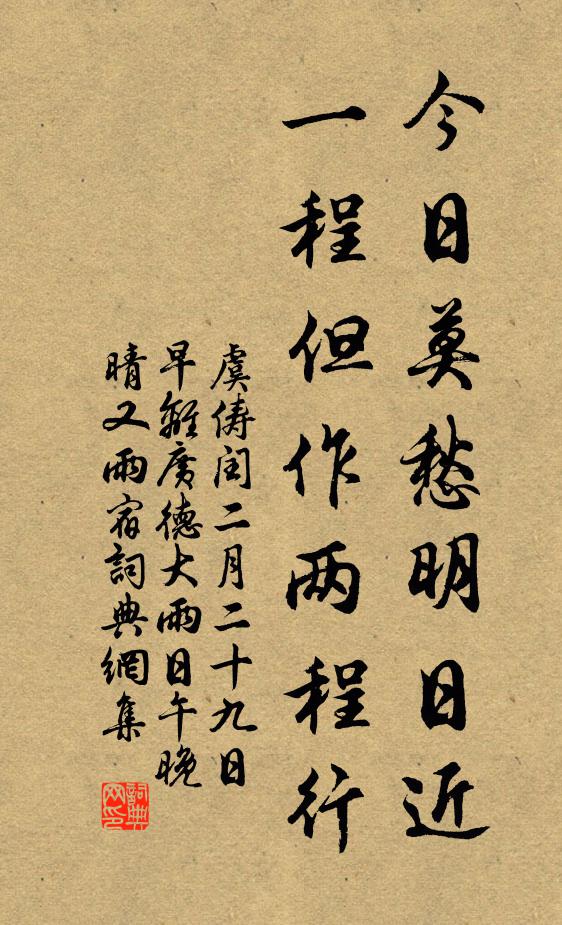 今日莫愁明日近
一程但作两程行
虞儔閏二月二十九日
早離廣德大雨日午晚
晴又雨宿詞典網集
詞典网印